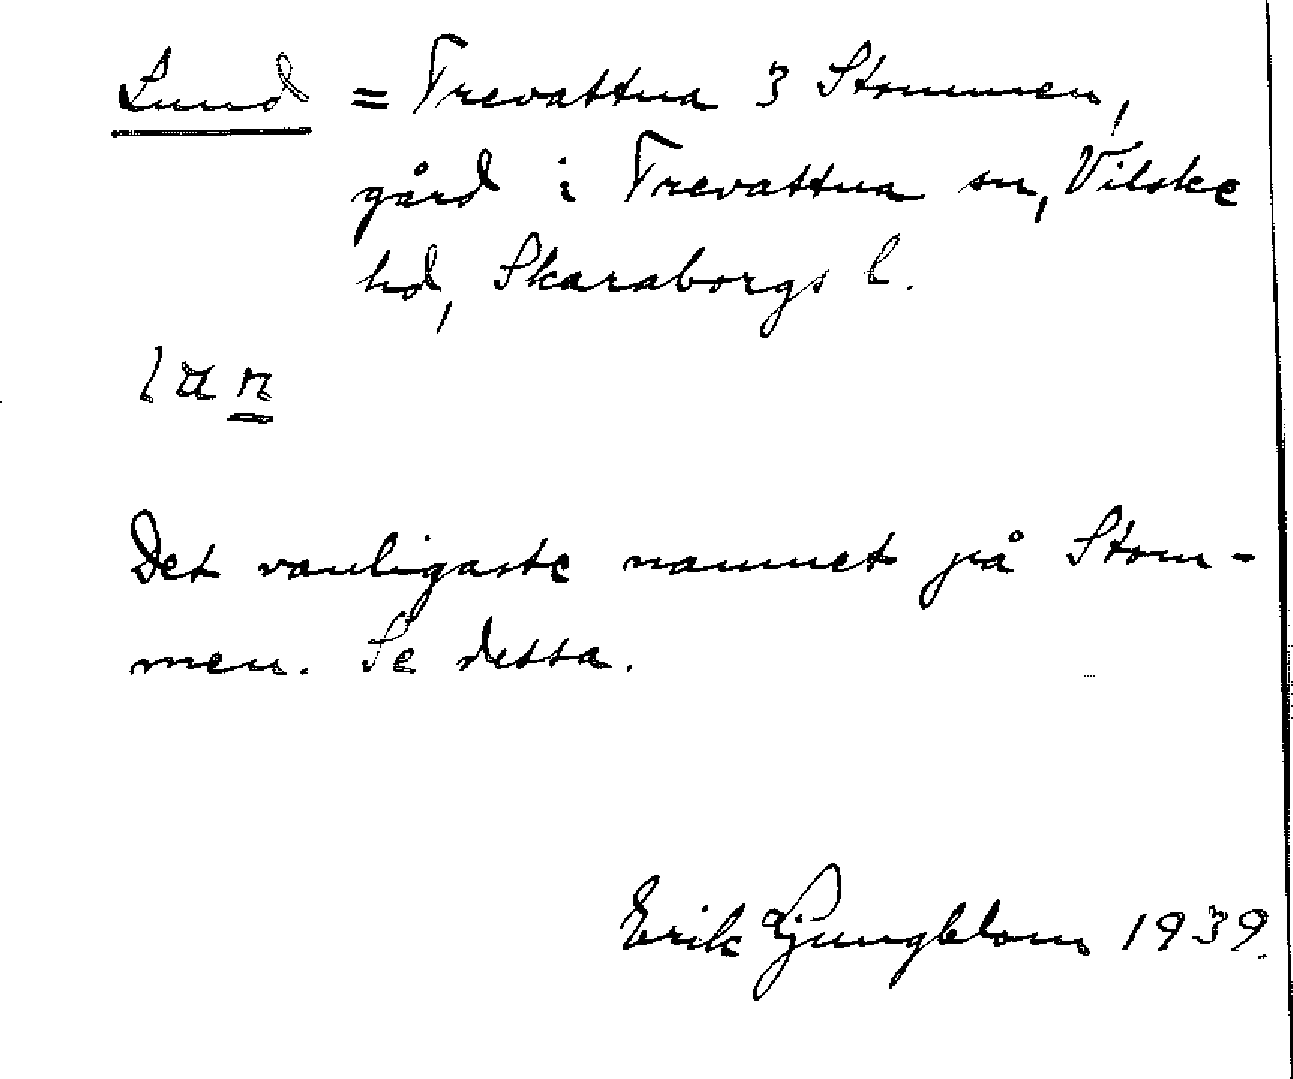 Lund = Trevattna 3 Stommen,
gård i Trevattna sn, Vilske
hd, Skaraborgs l.
lan
Det vanligaste namnet på Stom-
men. Se dessa.
Erik Ljungblom 1939.